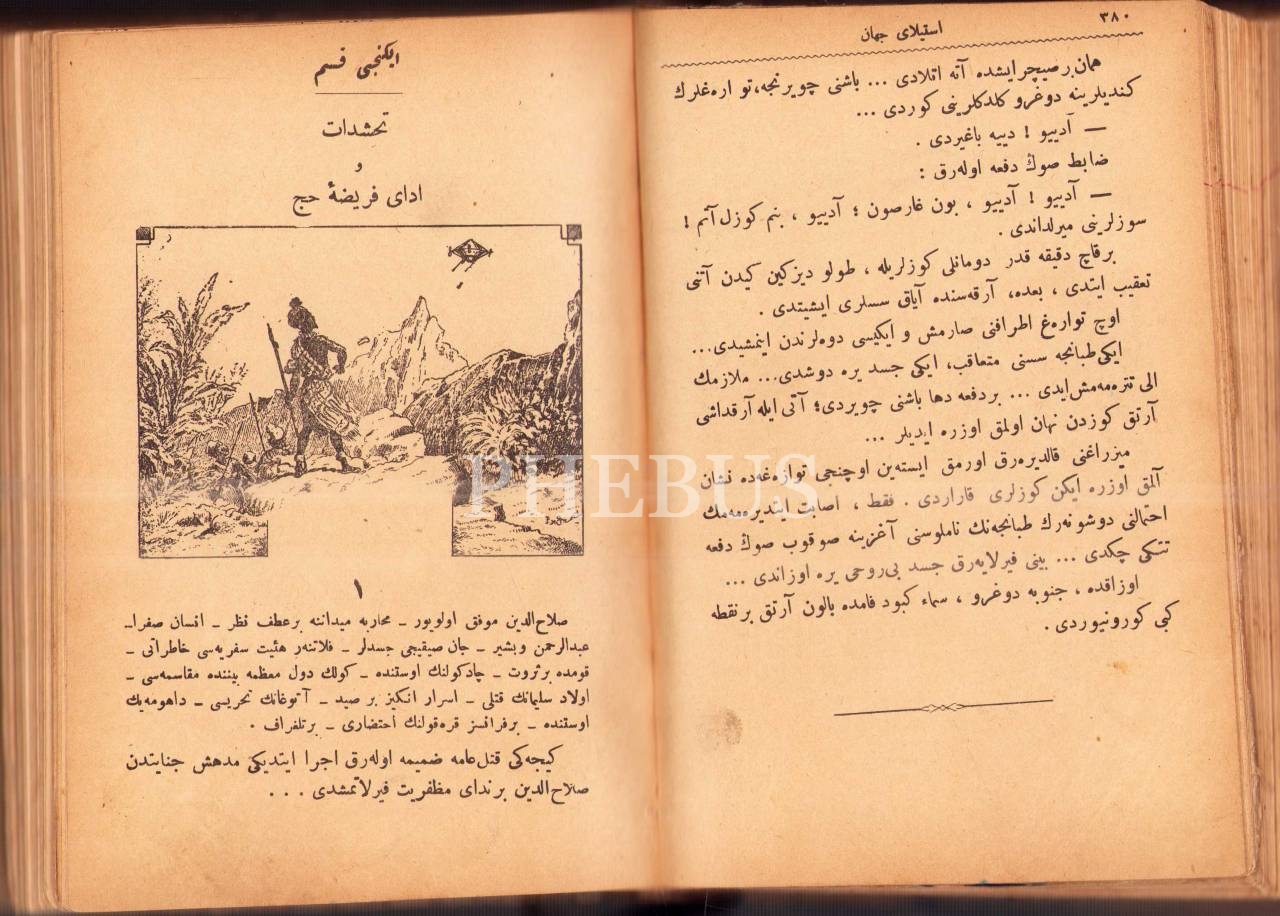 ٣٨٠
استيلاى جهان
همان برصيچرايشده آته اتلادى ... باشنى چويرنجه، تو اره‌غلرك
كنديلرينه دوغرو كلدكلرينى كوردى ...
— آدييو ! دييه باغيردى .
ضابط صوك دفعه اوله‌رق :
— آدييو ! آدييو ، بون غارصون ؛ آدييو ، بنم كوزل آتم !
سوزلرينى ميرلداندى .
برقاچ دقيقه قدر دومانلى كوزلريله ، طولو ديزكين كيدن آتنى
تعقيب ايتدى ، بعده، آرقه‌سنده آياق سسلرى ايشيتدى .
اوچ تواره‌غ اطرافنى صارمش و ايكيسى دوه‌لرندن اينمشيدى...
ايكى طبانجه سسنى متعاقب، ايكى جسد يره دوشدى... ملازمك
الى تتره‌مه‌مش‌ايدى ... بردفعه دها باشنى چويردى؛ آتى ايله آرقداشى
آرتق كوزدن نهان اولمق اوزره ايديلر ...
ميزراغنى قالديره‌رق اورمق ايسته‌ين اوچنجى توازه‌غه‌ده نشان
آلمق اوزره ايكن كوزلرى قاراردى . فقط ، اصابت ايتديره‌مه‌مك
احتمالنى دوشونه‌رك طبانجه‌نك ناملوسنى آغزينه صوقوب صوك دفعه
تتيكى چكدى ... بينى فيرلايه‌رق جسد بى‌روحى يره اوزاندى ...
اوزاقده ، جنوبه دوغرو ، سماء كبود فامده بالون آرتق برنقطه
كبى كورونيوردى .
ايكنجى قسم
تحشدات
و
اداى فريضۀ حج
١
صلاح‌الدين موفق اولويور ـ محاربه ميداننه برعطف نظر ـ انسان صفراـ
عبدالرحمن وبشير ـ جان صيقيجى جسدلر ـ فلاتنه‌ر هئيت سفريه‌سى خاطراتى ـ
قومده برثروت ـ چادكولنك اوستنده ـ كولك دول معظمه بيننده مقاسمه‌سى ـ
اولاد سليمانك قتلى ـ اسرار انكيز بر صيد ـ آتوغانك تحريسى ـ داهومه‌يك
اوستنده ـ برفرانسز قره‌قولنك احتضارى ـ برتلغراف .
كيجه‌كى قتل‌عامه ضميمه اوله‌رق اجرا ايتديكى مدهش جنايتدن
صلاح‌الدين برنداى مظفريت فيرلاتمشدى ...
PHEBUS